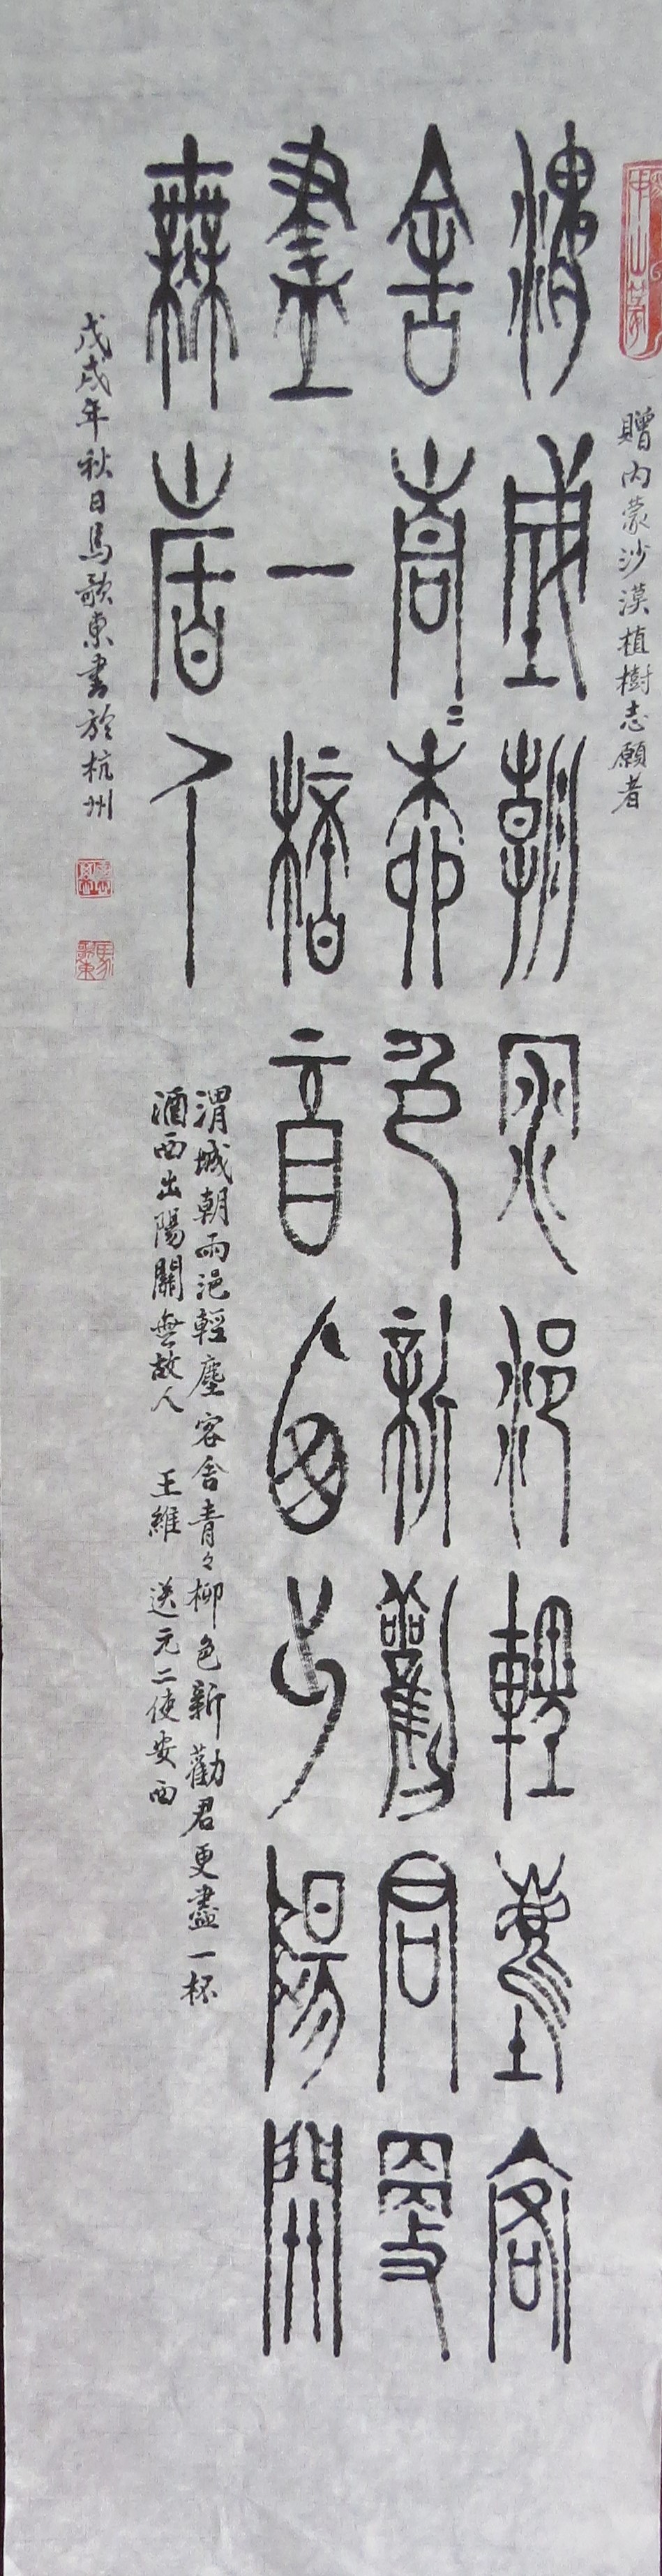 贈内蒙沙漠植樹志願者
渭城朝雨浥輕塵客
舍青〻柳色新勸君更
盡一桮酉自出陽關
無故人
渭城朝雨浥輕塵客舍青々柳色新勸君更盡一杯
酒西出陽關無故人 王維 送元二使安西
戊戌年秋日馬歌東書於杭州